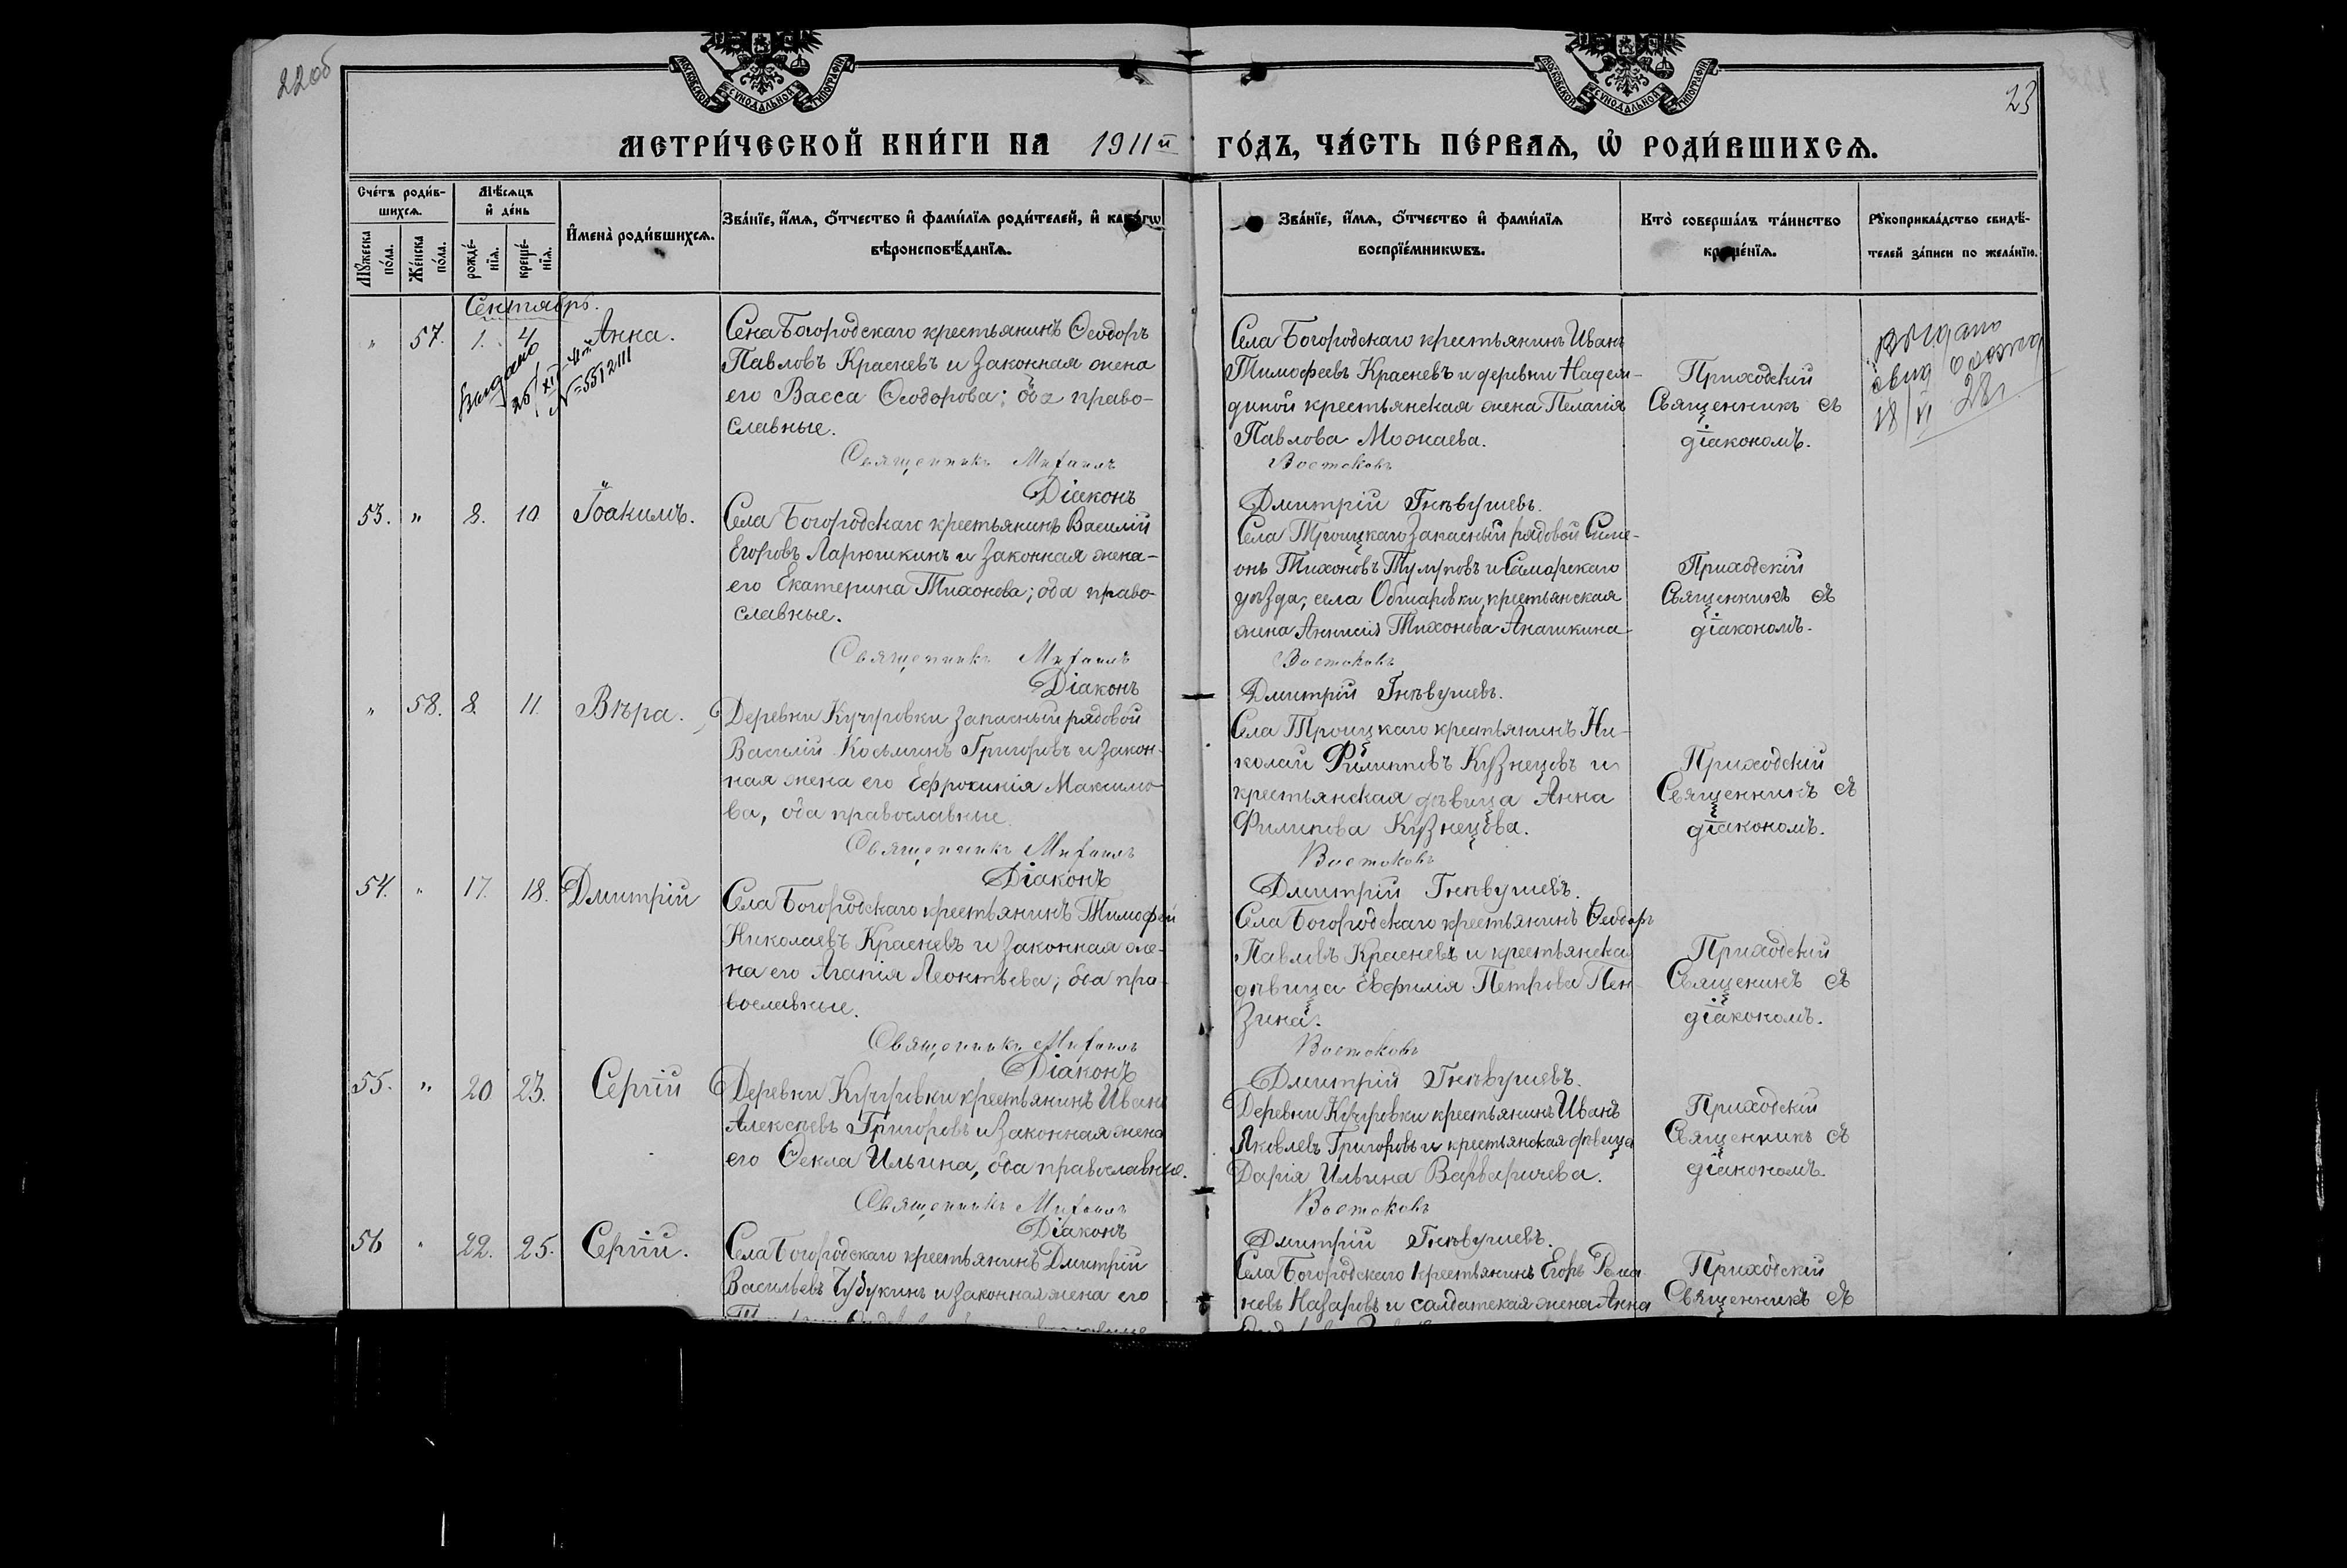 22об
23
МОСКОВСКОЙ СѴНОДАЛЬНОЙ ТИПОГРАФІИ
МОСКОВСКОЙ СѴНОДАЛЬНОЙ ТИПОГРАФІИ
МЕТРИ́ЧЕСКОЙ КНИ́ГИ НА 1911й ГО́ДЪ, ЧА́СТЬ ПЕ́РВАѦ, Ѡ РОДИ́ВШИХСѦ.
Сче́тъ роди́в-
шихсѧ.
Мѣ́сѧцъ
и҆ де́нь
Мꙋ́жеска по́ла.
Же́нска по́ла.
рожде́-нїѧ.
креще́-нїѧ.
И҆мена̀ роди́вшихсѧ.
Зва́нїе, и҆́мѧ, ѻ҆́тчество и҆ фами́лїѧ роди́телей, и҆ како́гѡ
вѣроисповѣ́данїѧ.
Зва́нїе, и҆́мѧ, ѻ҆́тчество и҆ фами́лїѧ
воспрїе́мникѡвъ.
Кто̀ соверша́лъ та́инство
креще́нїѧ.
Рꙋкоприкла́дство свидѣ́-
телей за́писи по жела́нїю.
Сентябрь.
" 57. 1. 4 Анна.
Выдано
№ 5512111
Села Богородскаго крестьянинъ Ѳеодоръ
Павловъ Красневъ и законная жена
его Васса Ѳеодорова; оба право-
славные.
Священникъ Михаилъ
Діаконъ
Села Богородскаго крестьянинъ Иванъ
Тимофеевъ Красневъ и деревни Надеж-
диной крестьянская жена Пелагія
Павлова Можаева.
Востоковъ
Дмитрій Гнѣвушевъ.
Приходскій
Священникъ съ
діакономъ.
выдано
18/VI 28г.
53. " 8. 10 Іоакимъ.
Села Богородскаго крестьянинъ Василій
Егоровъ Ларюшкинъ и законная жена-
его Екатерина Тихонова; оба право-
славные.
Священникъ Михаилъ
Діаконъ
Села Троицкаго запасный рядовой Симе-
онъ Тихоновъ и Самарскаго
уѣзда, села Обшаровки, крестьянская
жена Аннисія Тихонова Анашкина
Востоковъ
Дмитрій Гнѣвушевъ.
Приходскій
Священникъ съ
діакономъ.
" 58. 8. 11. Вѣра.
Деревни Кучуровки запасный рядовой
Василій Косьминъ Григоровъ и закон-
ная жена его Ефросинія Максимо-
ва, оба православные.
Священникъ Михаилъ
Діаконъ
Села Троицкаго крестьянинъ Ни-
колай Филипповъ Кузнецовъ и
крестьянская дѣвица Анна
Филипова Кузнецова.
Востоковъ
Дмитрій Гнѣвушевъ.
Приходскій
Священникъ съ
діакономъ.
54. " 17. 18. Дмитрій
Села Богородскаго крестьянинъ Тимофей
Николаевъ Красневъ и законная же-
на его Агапія Леонтьева; оба пра-
вославные.
Священникъ Михаилъ
Діаконъ
Села Богородскаго крестьянинъ Ѳеодоръ
Павловъ Красневъ и крестьянска
дѣвица Евфимія Петрова Пен-
зина.
Востоковъ
Дмитрій Гнѣвушевъ.
Приходскій
Священикъ съ
діакономъ.
55. " 20 23. Сергій
Деревни Кучуровки крестьянинъ Иванъ
Алексѣевъ Григоровъ и законная жена
его Ѳекла Ильина, оба православные.
Священникъ Михаилъ
Діаконъ
Деревни Кучуровки крестьянинъ Иванъ
Яковлевъ Григоровъ и крестьянская дѣвица
Дарія Ильина Варваричева.
Востоковъ
Дмитрій Гнѣвушевъ.
Приходскій
Священникъ съ
діакономъ.
56 " 22. 25. Сергій.
Села Богородскаго крестьянинъ Дмитрій
Васильевъ Чубукинъ и законная жена его
Села Богородскаго крестьянинъ Егоръ Рома
новъ Назаровъ и салдатская жена Анна
Приходскій
Священникъ съ